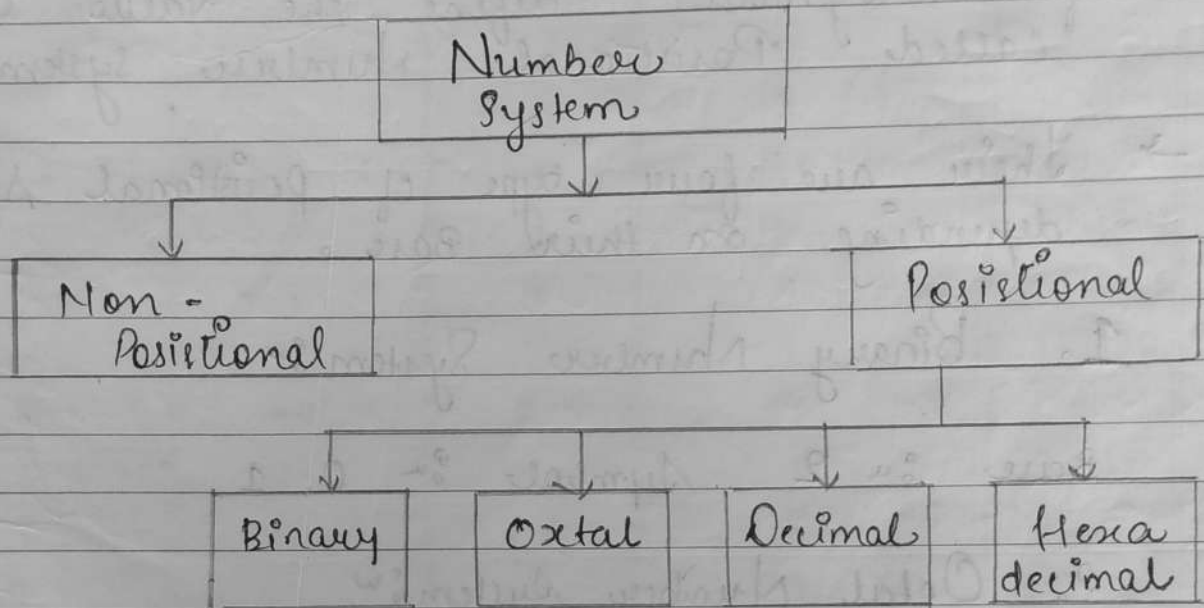 Number
System
Non -
Posistional
Posistional
Binary
Oxtal
Decimal
Hexa
decimal